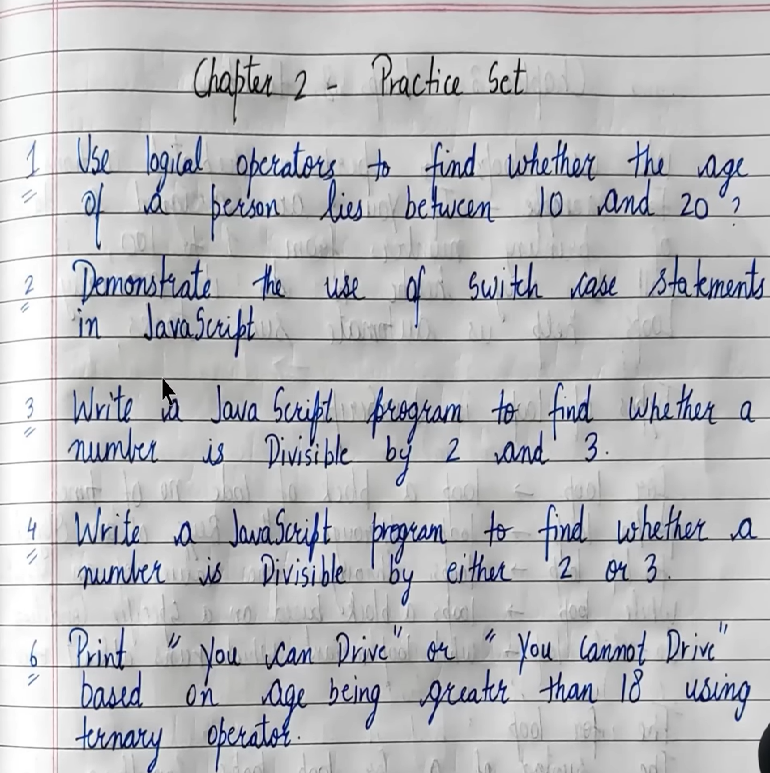 Chapter 2 - Practice Set
1 Use logical operators to find whether the age
of a person lies between 10 and 20 ?
2 Demonstrate the use of switch case statements
in JavaScript
3 Write a Java Script program to find whether a
number is Divisible by 2 and 3.
4 Write a JavaScript program to find whether a
number is Divisible by either 2 or 3.
6 Print " You can Drive" or " You Cannot Drive"
based on age being greater than 18 using
ternary operator.